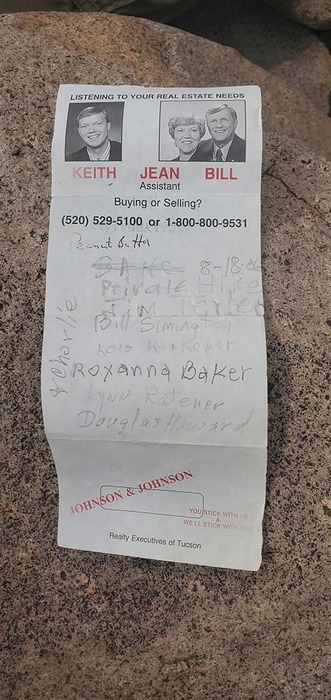 LISTENING TO YOUR REAL ESTATE NEEDS
KEITH JEAN BILL
Assistant
Buying or Selling?
(520) 529-5100 or 1-800-800-9531
Peanut Butter
8-18-06
Private Hike
Bill Simington
Lois
Roxanna Baker
Lynn Ratener
Douglas Howard
& Charlie
JOHNSON & JOHNSON
YOU STICK WITH US
&
WE'LL STICK WITH YOU
Realty Executives of Tucson